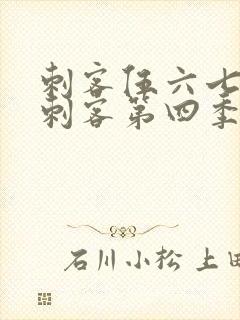 刺客伍六七
刺客第四季
石川小松 上田